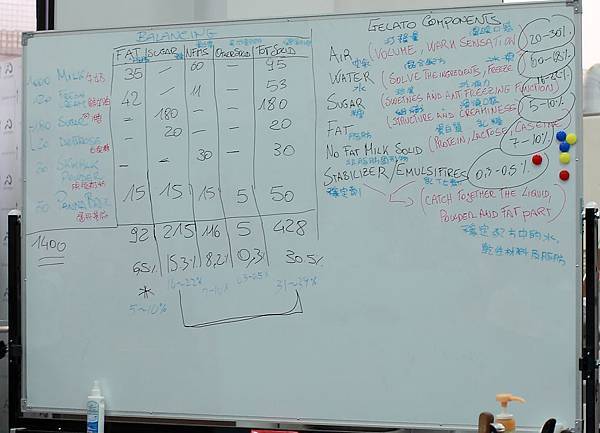 BALANCING
FAT SUGAR NFMS OTHER SOLID TOT SOLID
1000 MILK 牛奶 35 — 60 — 95
FRESH CREAM 42 — 11 — 53
180 SUGAR 糖 — 180 — — 180
DEXTROSE — 20 — — 20
SKIM MILK POWDER — — 30 — 30
50 15 15 15 5 50
1400 92 215 116 5 428
6,5% 15.3% 8,2% 0,3% 30.5%
* 16~22% 7~10% 0.3~0.5% 31~39%
5~10%
GELATO COMPONENTS
AIR (VOLUME, WARM SENSATION) 20~30%
空氣
WATER (SOLVE THE INGREDIENTS, FREEZE) 60~68%
水
SUGAR (SWEETNES AND ANTI FREEZING FUNCTION) 16~22%
糖
FAT (STRUCTURE AND CREAMINESS) 5~10%
脂肪 蛋白質 乳糖
NO FAT MILK SOLID (PROTEIN, LACTOSE, CASEINE) 7~10%
STABILIZER/EMULSIFIRES 0,3~0.5%
穩定劑 乳化劑
(CATCH TOGETHER THE LIQUID, POWDER AND FAT PART)
穩定配方中的水,
乾性材料及脂肪